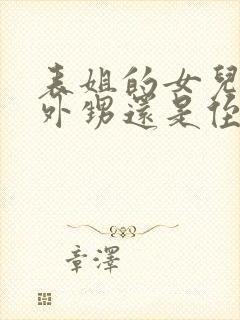 表姐的女兒
外甥還是侄
章澤